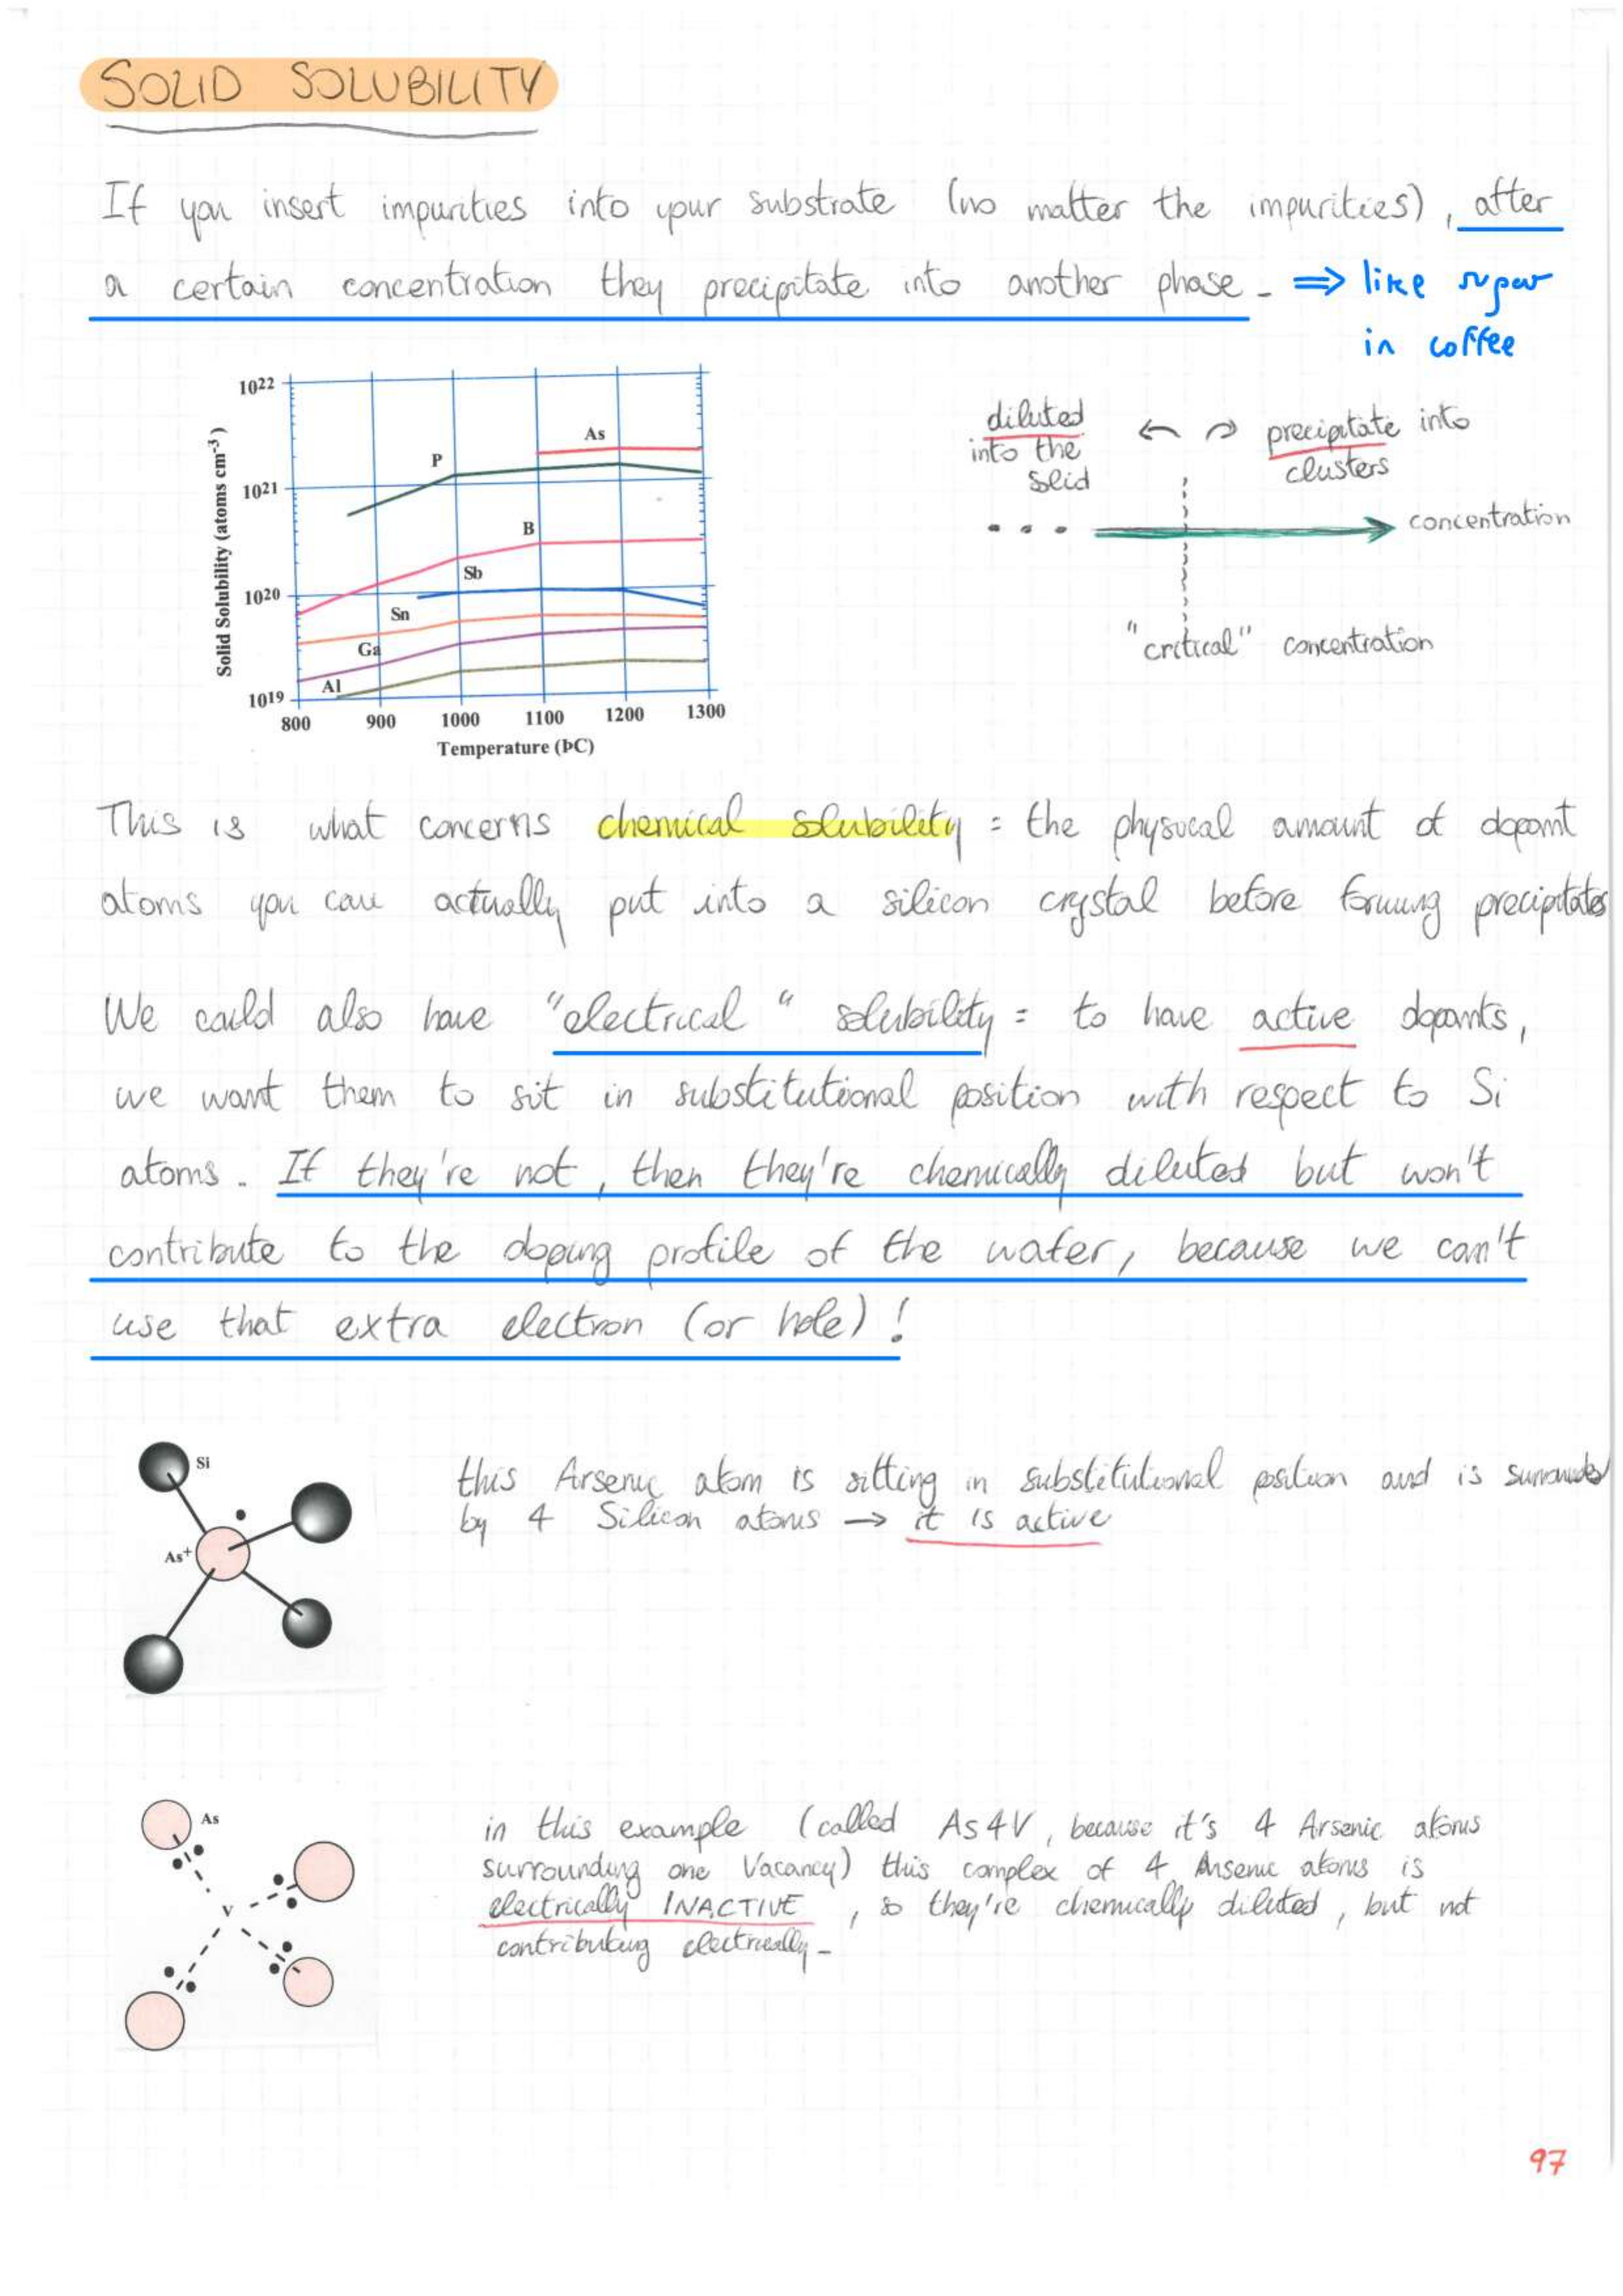 SOLID SOLUBILITY
If you insert impurities into your substrate (no matter the impurities), after
a certain concentration they precipitate into another phase - ⇒ like sugar
in coffee
1022
1021
1020
1019
Solid Solubility (atoms cm-3)
As
P
B
Sb
Sn
Ga
Al
800 900 1000 1100 1200 1300
Temperature (ÞC)
diluted
into the
solid
← → precipitate into
clusters
concentration
"critical" concentration
This is what concerns chemical solubility = the physical amount of dopant
atoms you can actually put into a silicon crystal before forming precipitates
We could also have "electrical" solubility = to have active dopants,
we want them to sit in substitutional position with respect to Si
atoms. If they're not, then they're chemically diluted but won't
contribute to the doping profile of the wafer, because we can't
use that extra electron (or hole)!
Si
As+
this Arsenic atom is sitting in substitutional position and is surrounded
by 4 Silicon atoms → it is active
As
V
in this example (called As4V, because it's 4 Arsenic atoms
surrounding one Vacancy) this complex of 4 Arsenic atoms is
electrically INACTIVE, so they're chemically diluted, but not
contributing electrically -
97